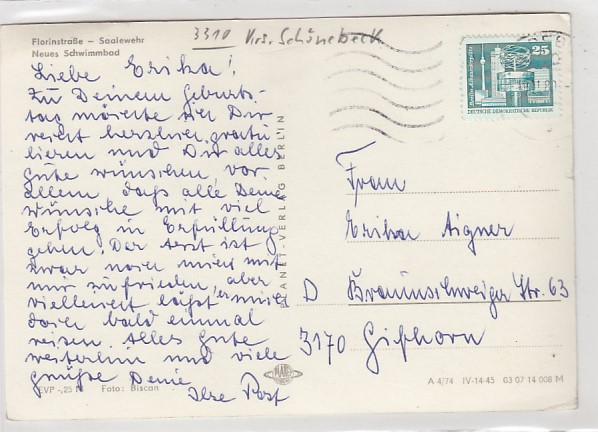 3310 Krs. Schönebeck
Florinstraße – Saalewehr
Neues Schwimmbad
Liebe Erika!
Zu Deinem Geburts-
tag möchte ich Dir
recht herzlich gratu
lieren und Dir alles
gute wünschen, vor
allem daß alle Deine
Wünsche mit viel
Erfolg in Erfüllung
gehen. Der Arzt ist
zwar noch nicht mit
mir zufrieden, aber
vielleicht läßt er mich
doch bald einmal
reisen. Alles Gute
weiterhin und viele
Grüße Deine
Ilse Post
EVP -,25 M Foto: Biscan
PLANET-VERLAG BERLIN
25
Berlin-Alexanderplatz
DEUTSCHE DEMOKRATISCHE REPUBLIK
Frau
Erika Aigner
D Braunschweiger Str. 63
3170 Gifhorn
A 4/74 IV-14-45 03 07 14 008 M